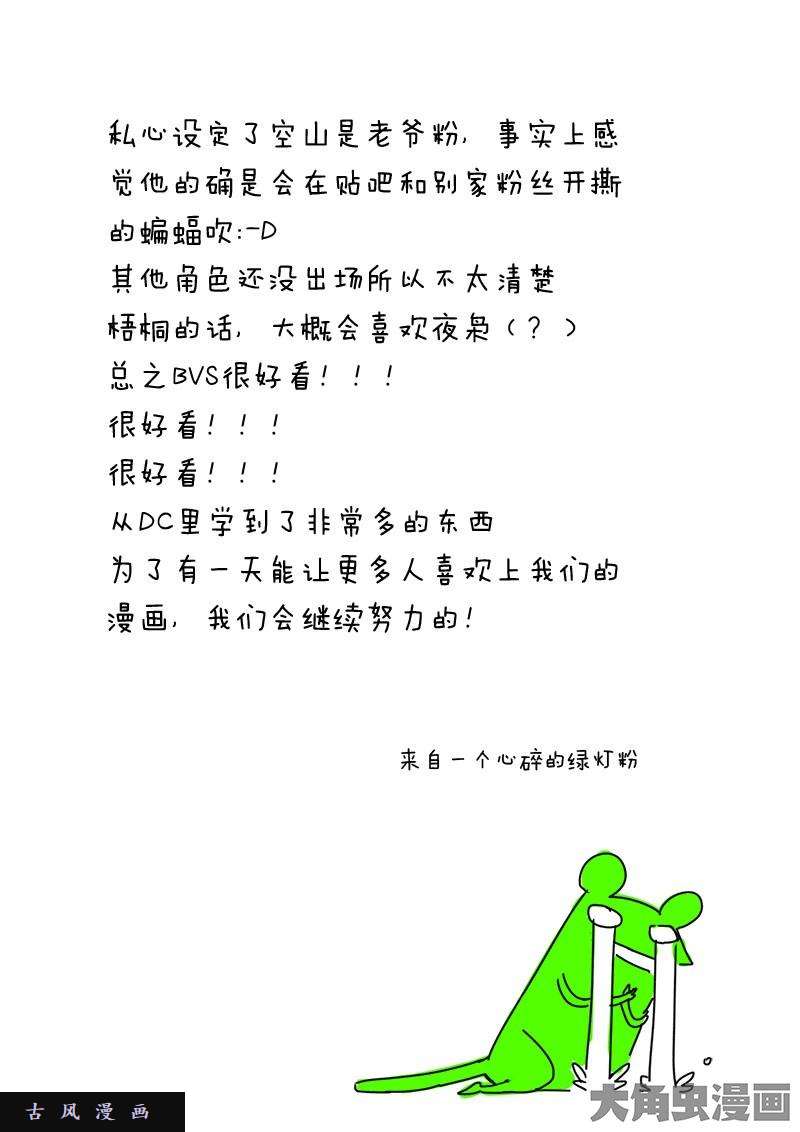 私心设定了空山是老爷粉，事实上感
觉他的确是会在贴吧和别家粉丝开撕
的蝙蝠吹:-D
其他角色还没出场所以不太清楚
梧桐的话，大概会喜欢夜枭（？）
总之BVS很好看！！！
很好看！！！
很好看！！！
从DC里学到了非常多的东西
为了有一天能让更多人喜欢上我们的
漫画，我们会继续努力的！
来自一个心碎的绿灯粉
古风漫画
大角虫漫画